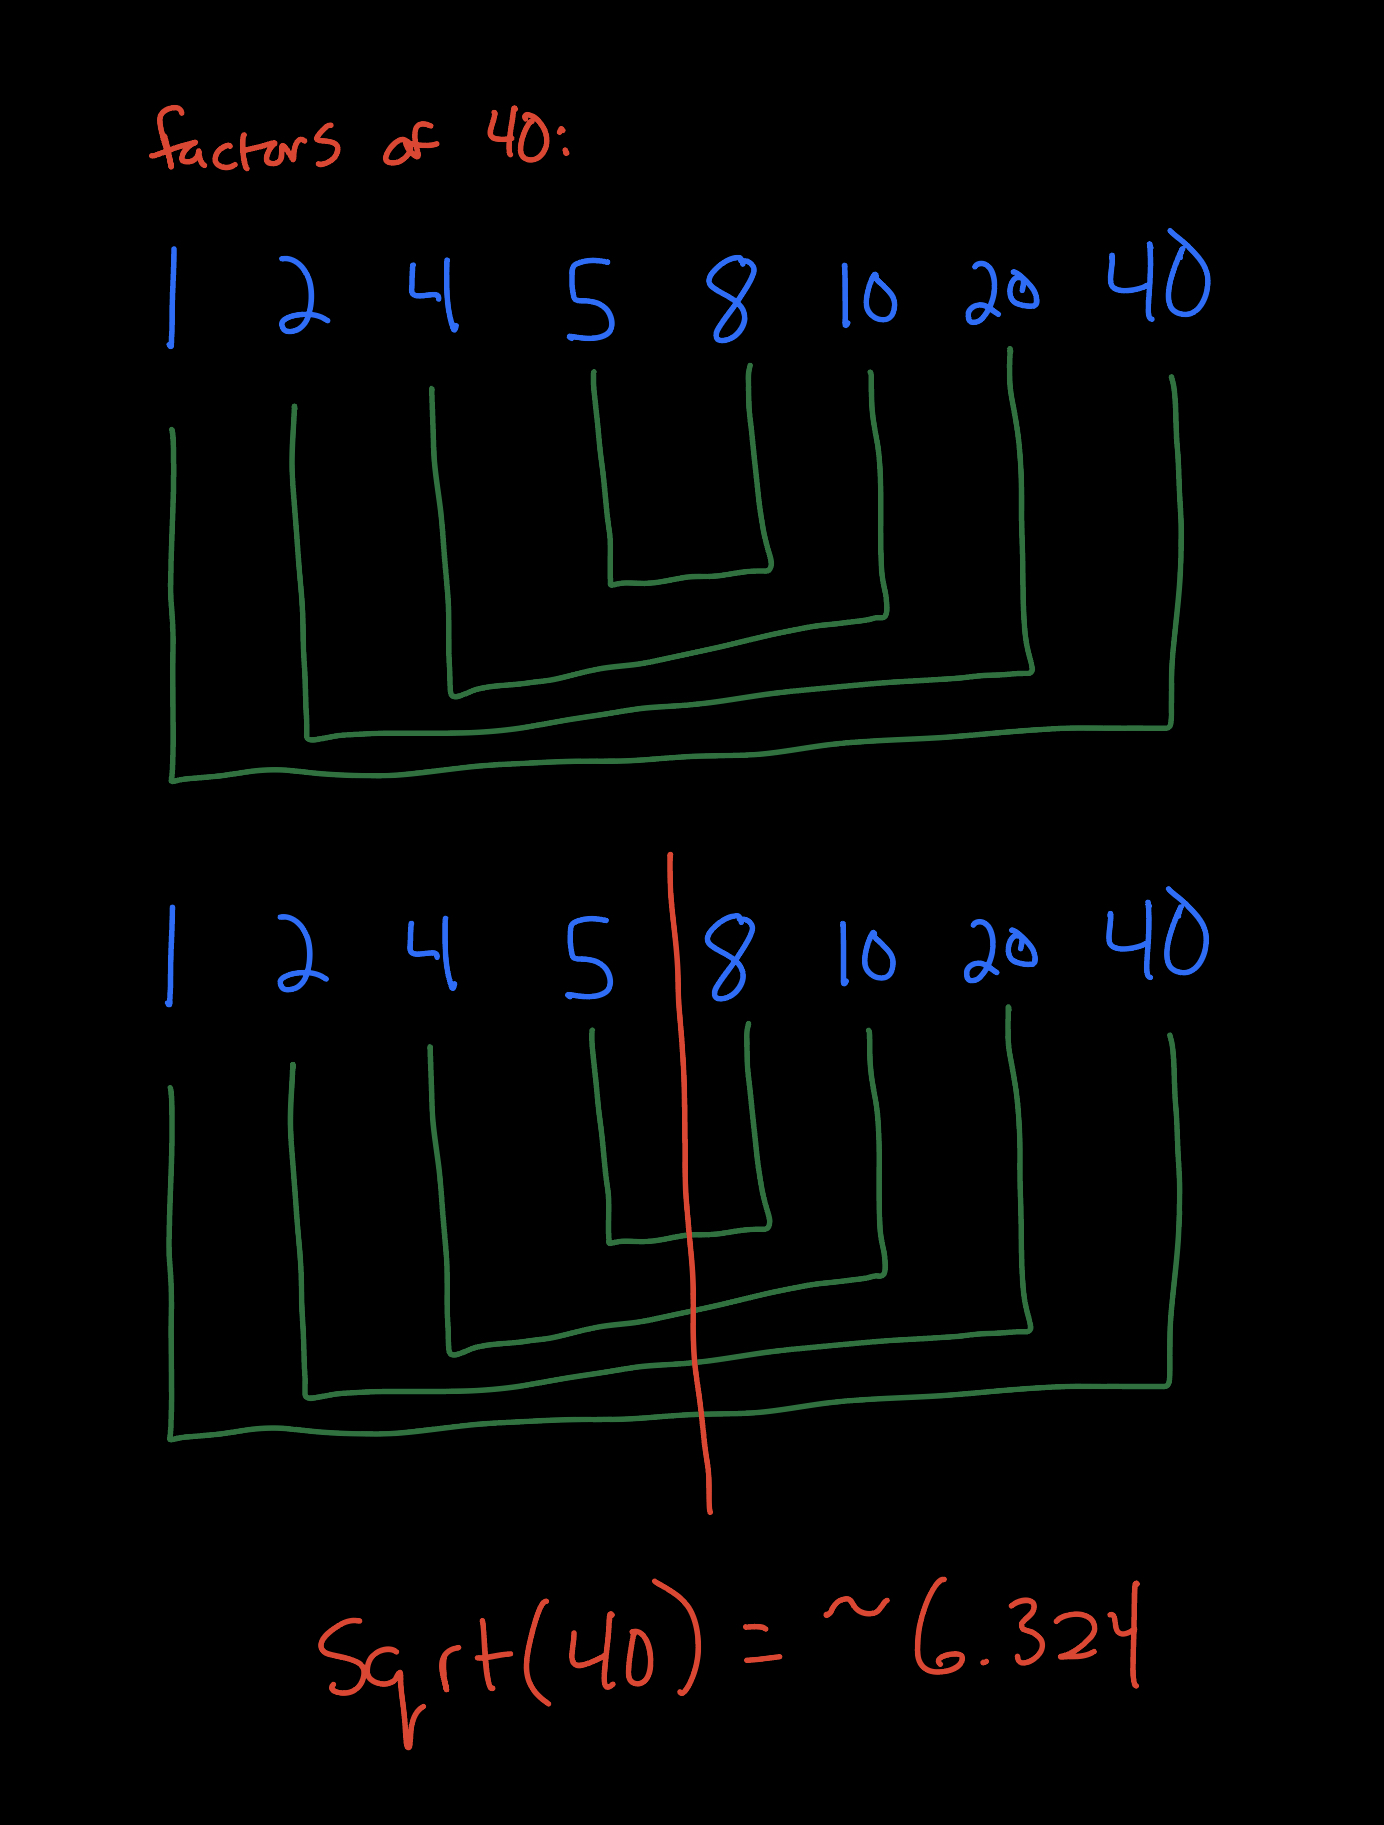 factors of 40:
1 2 4 5 8 10 20 40
1 2 4 5 8 10 20 40
Sqrt(40) = ~6.324